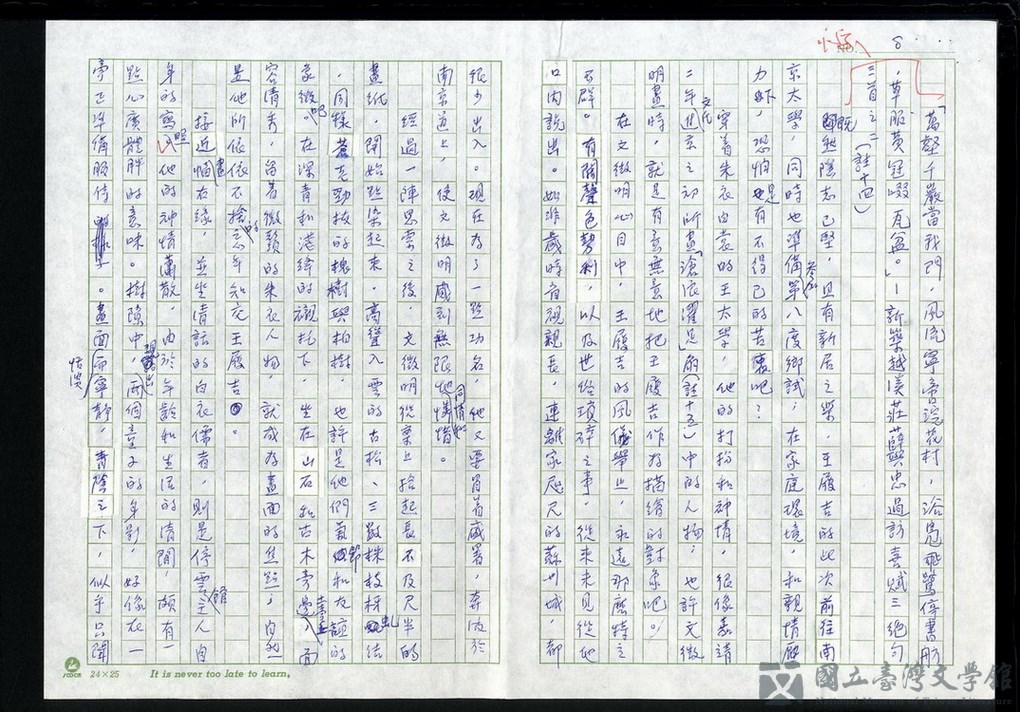 8
小字
「萬壑千巖當我門,風流寧啻浣花村,洽鳧飛鷺停書舫
,草服黃冠啜瓦盆。」-新築越溪莊薛與忠過訪喜賦三絕句
三首之二(註十四)
既然隱志已堅,且有新居之樂,王履吉的此次前往南
京太學,同時也準備參加第八度鄉試;在家庭環境,和親情壓
力下,恐怕也是有不得已的苦衷吧?
穿着朱衣白裳的王太學,他的打扮和神情,很像嘉靖
二年文氏進京之初所畫「滄浪濯足」扇(註十五)中的人物;也許文徵
明畫時,就是有意無意地把王履吉作為描繪的對象吧。
在文徵明心目中,王履吉的風儀舉止,永遠那麼特立
不群。有關聲色勢利,以及世俗瑣碎之事,從來未見從他
口內說出。如非歲時省視親長,連離家咫尺的蘇州城,都
很少出入。現在為了一點功名,他又要冒着盛暑,奔波於
南京道上,使文徵明感到無限地同情和惋惜。
經過一陣思索之後,文徵明從案上拾起長不及尺半的
畫紙,開始點染起來,高聳入雲的古松、三數株枝枒虬結
,同樣蒼老勁拔的槐樹與柏樹,也許是他們氣節和友誼的
象徵吧。在深青和淺絳的襯托下,坐在山石和古木旁邊,面
容清秀,留着微鬚的朱衣人物,就成為畫面的焦點;自然
是他所依依不捨的忘年知交王履吉。
接近畫幅右緣,並坐清談的白衣儒者,則是停雲館主人自
身的寫照,他的神情蕭散,由於年齡和生活的清閒,頗有一
點心廣體胖的意味。樹隙中,現出兩個童子的身影,好像在一
旁正準備服侍。畫面恬淡而寧靜,青蔭之下,似乎只聽
24×25
It is never too late to learn.
國立臺灣文學館